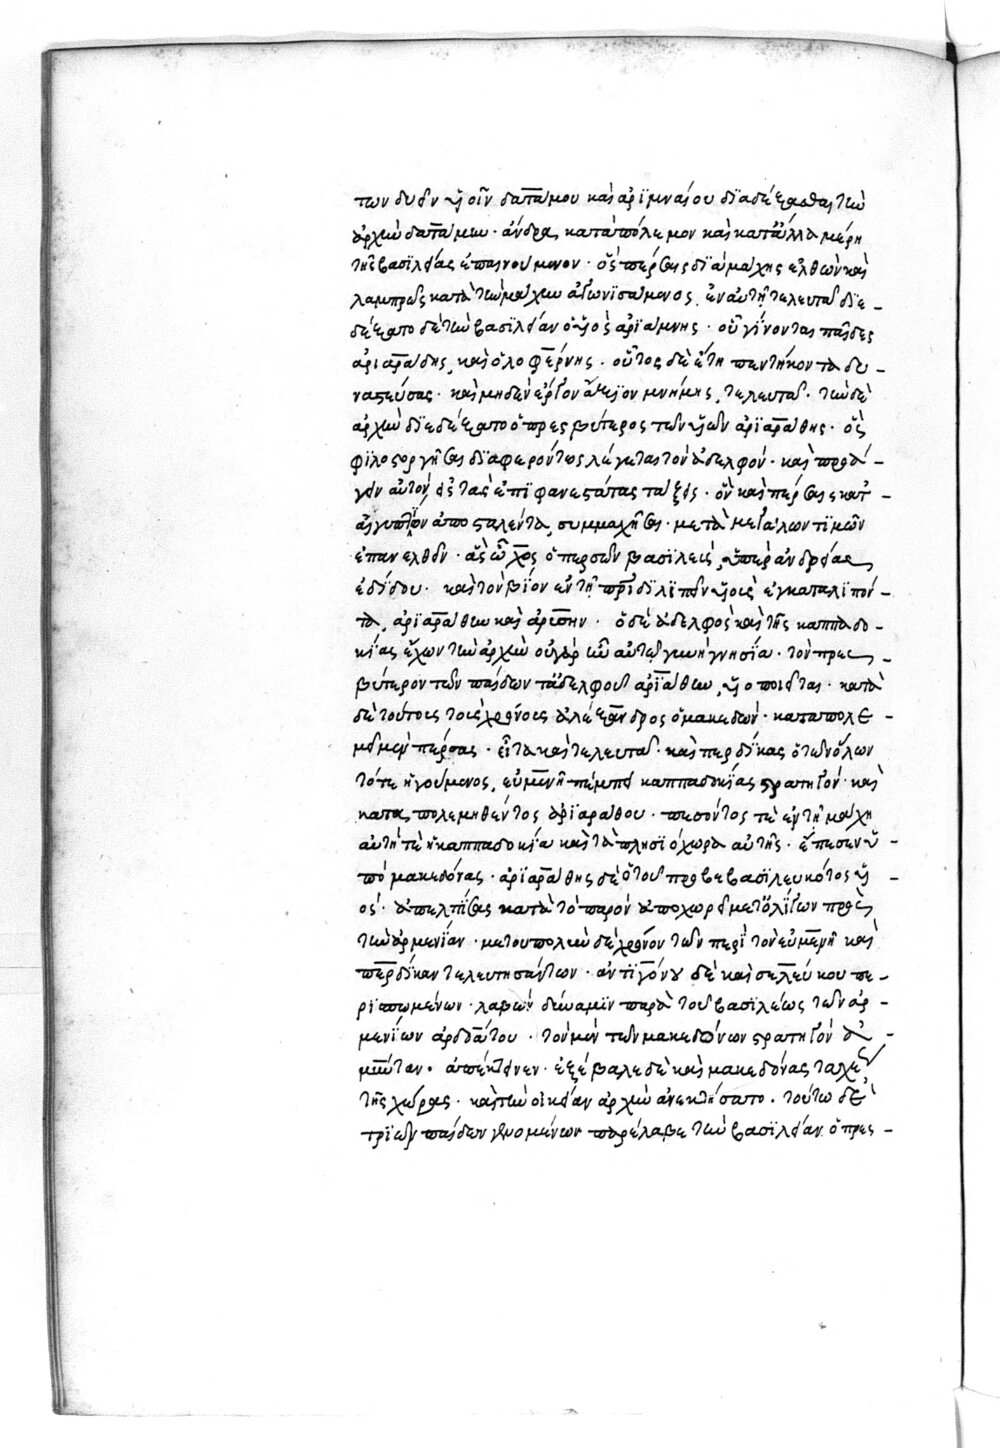 των δυεῖν υἱοῖν δατάμου καὶ ἀριμναίου διαδέξασθαι τὴν
ἀρχὴν δατάμην· ἄνδρα, κατὰ πόλεμον καὶ κατὰ ἄλλα μέρη
τῆς βασιλείας ἐπαινούμενον· ὃς πέρσαις διὰ μάχης ἐλθὼν καὶ
λαμπρῶς κατὰ τὴν μάχην ἀγωνισάμενος, ἐν αὐτῇ τελευτᾷ διε-
δέξατο δὲ τὴν βασιλείαν ὁ υἱὸς ἀριάμνης· οὗ γίνονται παῖδες
ἀριαράθης, καὶ ὁλοφέρνης· οὗτος δὲ ἔτη πεντήκοντα δυ-
ναστεύσας· καὶ μηδὲν ἔργον ἄξιον μνήμης, τελευτᾷ· τὴν δὲ
ἀρχὴν διεδέξατο ὁ πρεσβύτερος τῶν υἱῶν ἀριαράθης· ὃς
φιλοστοργῆσαι διαφερόντως λέγεται τὸν ἀδελφόν· καὶ προά-
γειν αὐτὸν, εἰς τὰς ἐπιφανεστάτας τάξεις· ὃν καὶ πέρσαις κατ'
αἰγυπτίων ἀποσταλέντα, συμμαχῆσαι· μετὰ μεγάλων τιμῶν
ἐπανελθεῖν· ἃς ὦχος ὁ περσῶν βασιλεὺς, ὑπὲρ ἀνδρείας
ἐδίδου· καὶ τὸν βίον ἐν τῇ πατρίδι λιπεῖν υἱοὺς ἐγκαταλιπόν-
τα, ἀριαράθην καὶ ἀρύσην· ὁ δὲ ἀδελφὸς καὶ τῆς καππαδο-
κίας ἔχων τὴν ἀρχὴν οὐ γὰρ ἦν αὐτῷ γονὴ γνησία· τὸν πρεσ-
βύτερον τῶν παίδων τἀδελφοῦ ἀριαράθην, υἱοποιεῖται· κατὰ
δὲ τούτους τοὺς χρόνους ἀλέξανδρος ὁ μακεδὼν· καταπολε-
μεῖ μὲν πέρσας· εἶτα καὶ τελευτᾷ· καὶ περδίκκας ὁ τῶν ὅλων
τότε ἡγούμενος, εὐμένη πέμπει καππαδοκίας στρατηγόν· καὶ
καταπολεμηθέντος ἀριαράθου· πεσόντος τε ἐν τῇ μάχῃ
αὐτή τε ἡ καππαδοκία καὶ τὰ πλησιόχωρα αὐτῆς· ἔπεσεν ὑ-
πὸ μακεδόνας· ἀριαράθης δὲ ὁ τοῦ προβεβασιλευκότος υἱ-
ός· ἀπελπίσας κατὰ τὸ παρὸν ἀποχωρεῖ μετ' ὀλίγων πρὸς
τὴν ἀρμενίαν· μετ' οὐ πολὺν δὲ χρόνον τῶν περὶ τὸν εὐμένη καὶ
περδίκκαν τελευτησάντων· ἀντιγόνου δὲ καὶ σελεύκου πε-
ρισπωμένων· λαβὼν δύναμιν παρὰ τοῦ βασιλέως τῶν ἀρ-
μενίων ἀρδοάτου· τὸν μὲν τῶν μακεδόνων στρατηγὸν ἀ-
μύνταν· ἀπέκτεινεν· ἐξέβαλε δὲ καὶ μακεδόνας ταχέως
τῆς χώρας· καὶ τὴν οἰκείαν ἀρχὴν ἀνεκτήσατο· τούτῳ δὲ
τριῶν παίδων γενομένων παρέλαβε τὴν βασιλείαν ὁ πρεσ-